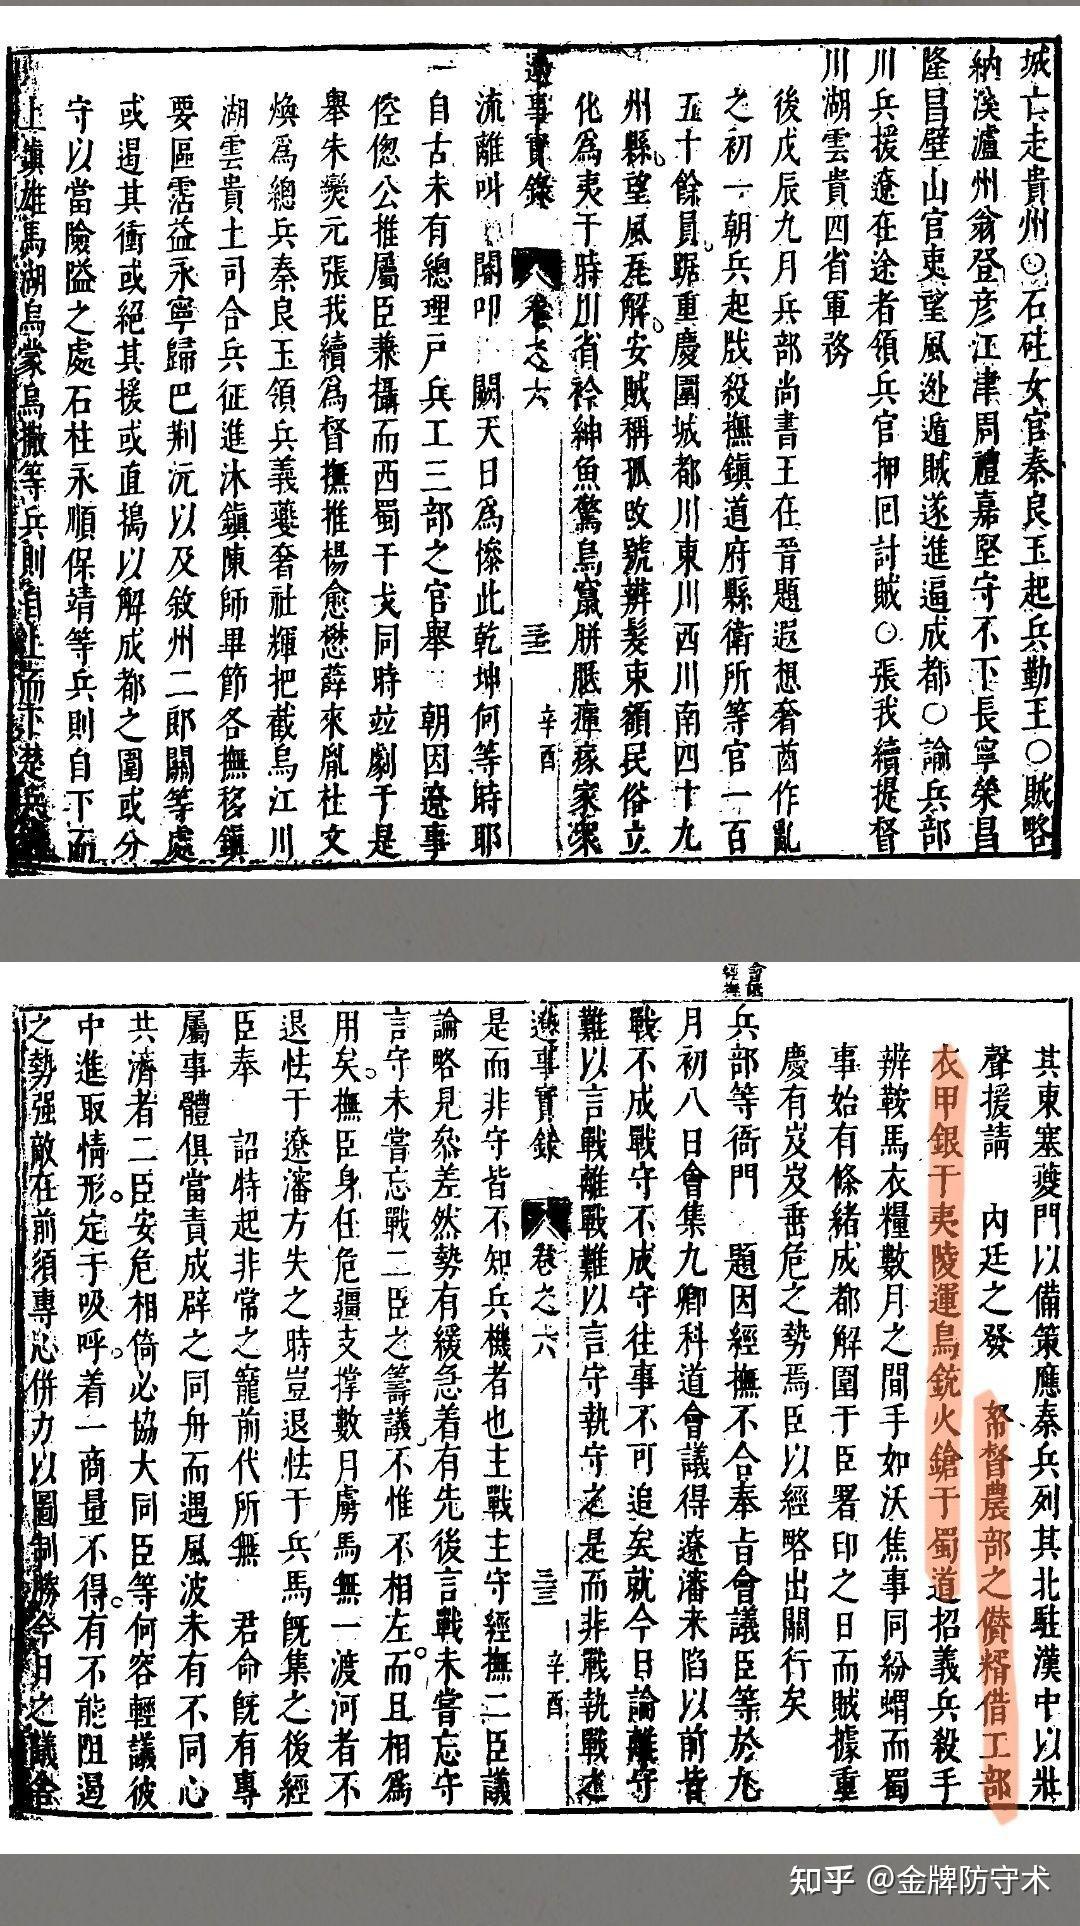 城亡走貴州○石砫女官秦良玉起兵勤王○賊略
納溪瀘州翁登彦江津周禮嘉堅守不下長寧榮昌
隆昌壁山官吏望風逊遁賊遂進逼成都○諭兵部
川兵援遼在途者領兵官押囘討賊○張我續提督
川湖雲貴四省軍務
後戊辰九月兵部尚書王在晉題遐想奢酋作亂
之初一朝兵起戕殺撫鎮道府縣衛所等官一百
五十餘員踞重慶圍城都川東川西川南四十九
州縣望風瓦解安賊稱孤改號辨髮束額民俗立
化為夷于時川省衿紳魚驚鳥竄胼胝瘅瘃家衆
遼事實錄 卷之六 三三 辛酉
流離叫 閽叩 闕天日為慘此乾坤何等時耶
自古未有總理戸兵工三部之官舉 朝因遼事
倥偬公推屬臣兼攝而西蜀干戈同時竝劇于是
舉朱燮元張我續為督撫推楊愈懋薛來胤杜文
煥為總兵秦良玉領兵義奢社輝把截烏江川
湖雲貴土司合兵征進沐鎮陳師畢節各撫移鎮
要區霑益永寧歸巴荆沅以及敘州二郎關等處
或遏其衝或絕其援或直搗以解成都之圍或分
守以當險隘之處石柱永順保靖等兵則自下而
上鎮雄馬湖烏蒙烏撒等兵則自上而下楚兵
會議經撫
其東塞夔門以備策應秦兵列其北駐漢中以壯
聲援請 內廷之發 帑督農部之儹糈借工部
衣甲銀于夷陵運鳥銃火鎗于蜀道招義兵殺手
辨鞍馬衣糧數月之間手如沃焦事同紛蝟而蜀
事始有條緒成都解圍于臣署印之日而賊據重
慶有岌岌垂危之勢焉臣以經略出關行矣
兵部等衙門 題因經撫不合奉旨會議臣等於九
月初八日會集九卿科道會議得遼瀋未陷以前皆
戰不成戰守不成守往事不可追矣就今日論離守
難以言戰離戰難以言守執守之是而非戰執戰之
遼事實錄 卷之六 三三 辛酉
是而非守皆不知兵機者也主戰主守經撫二臣議
論略見叅差然勢有緩急着有先後言戰未嘗忘守
言守未嘗忘戰二臣之籌議不惟不相左而且相為
用矣撫臣身任危疆支撑數月虜馬無一渡河者不
退怯于遼瀋方失之時豈退怯于兵馬既集之後經
臣奉 詔特起非常之寵前代所無 君命既有專
屬事體俱當責成辟之同舟而遇風波未有不同心
共濟者二臣安危相倚必協大同臣等何容輕議彼
中進取情形定于吸呼着一商量不得有不能阻遏
之勢强敵在前須專心併力以圖制勝今日之議舍
知乎 @金牌防守术